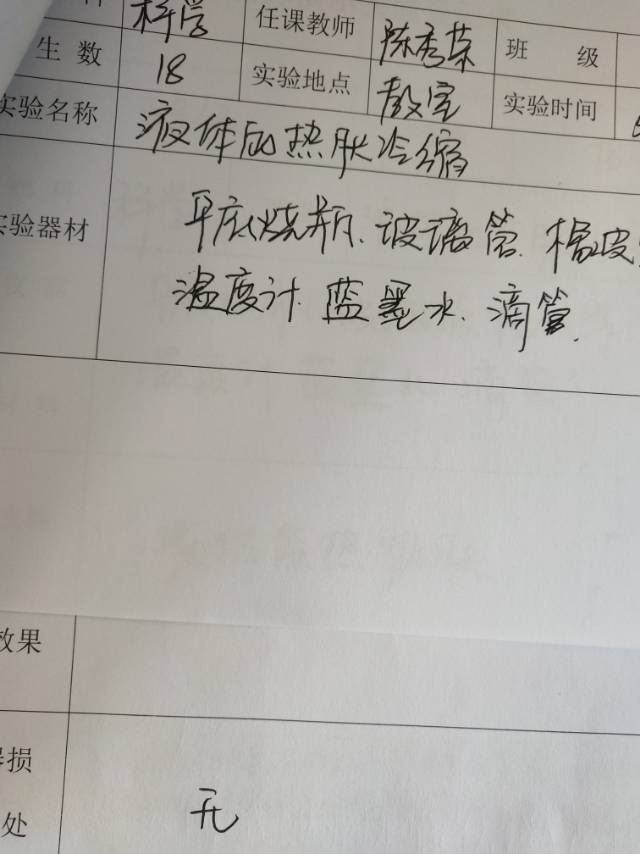 科学 任课教师 陈秀荣 班 级
生 数 18 实验地点 教室 实验时间
实验名称 液体的热胀冷缩
实验器材 平底烧瓶、玻璃管、橡皮
温度计、蓝墨水、滴管
效果
损
处 无